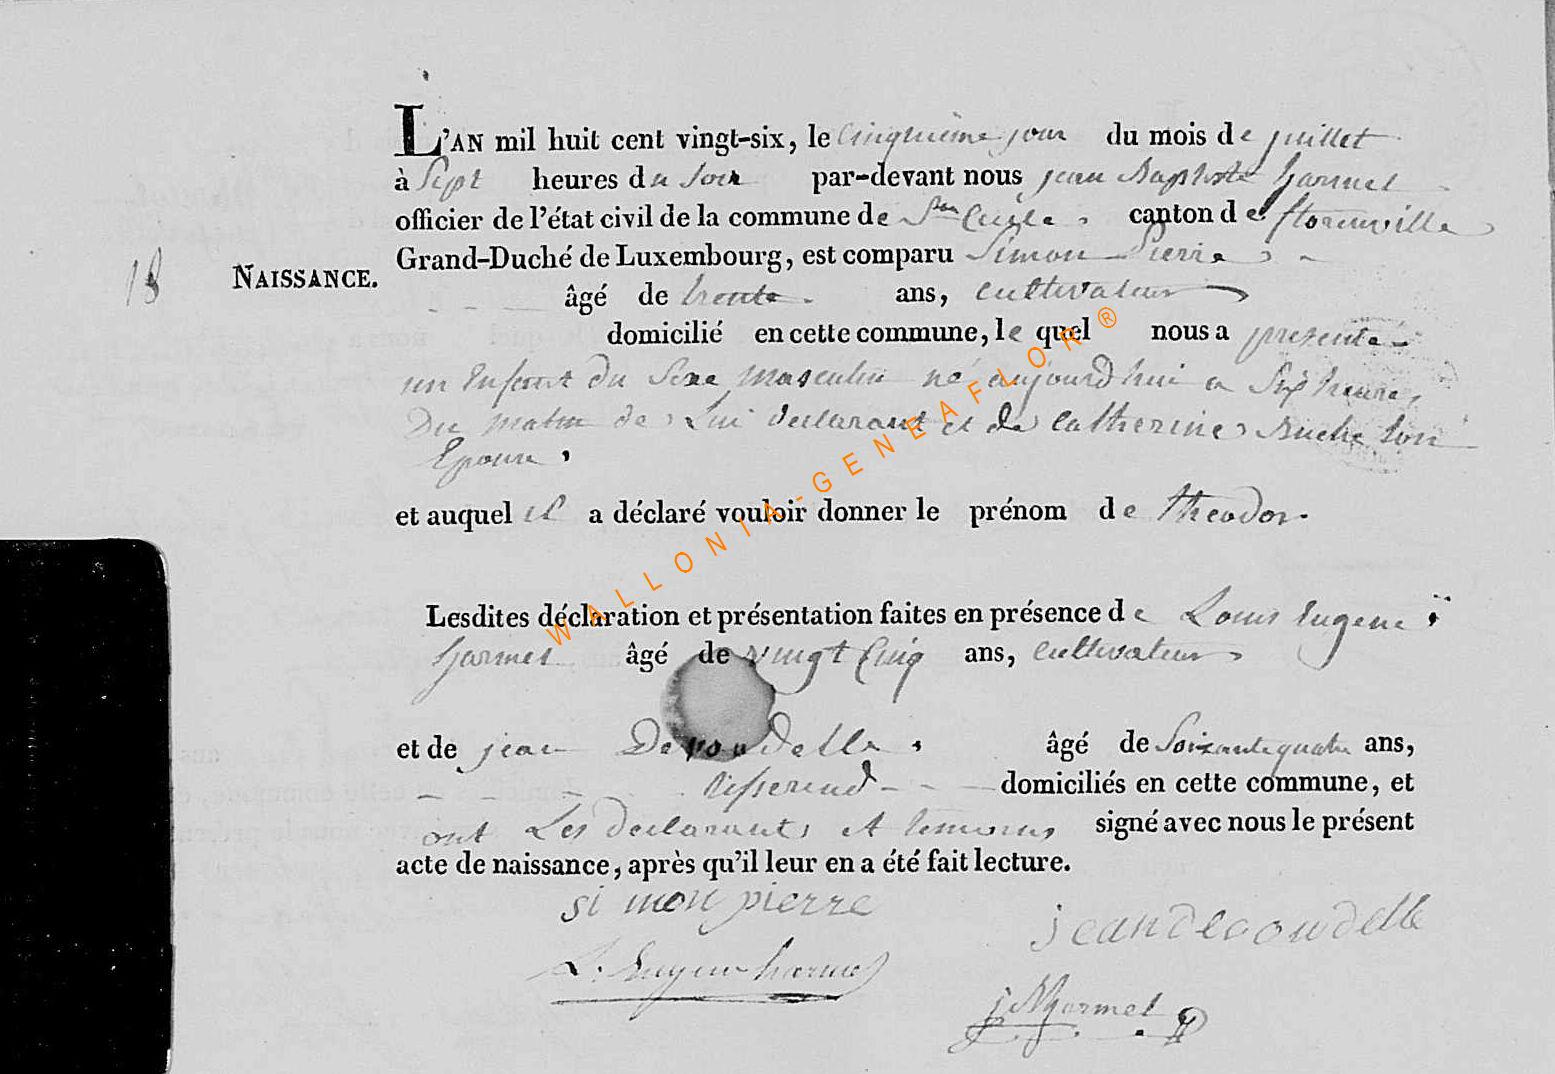 L'AN mil huit cent vingt-six, le Cinquieme jour du mois de juillet
à Sept heures du Soir par-devant nous jean Baptiste harmel
officier de l'état civil de la commune de Ste Cecile canton de florenville
Grand-Duché de Luxembourg, est comparu Simon Pierre
18 NAISSANCE.
âgé de trente ans, cultivateur
domicilié en cette commune, le quel nous a presenté
un Enfant du Sexe masculin né aujourd hui a Six heures
Du matin de Lui declarant et de Catherine Buche Son
Epouse,
et auquel il a déclaré vouloir donner le prénom de theodor
Lesdites déclaration et présentation faites en présence de Louis Eugene
harmel âgé de vingt Cinq ans, cultivateur
et de jean âgé de Soixante quatre ans,
tisserend domiciliés en cette commune, et
ont Les declarants et temoins signé avec nous le présent
acte de naissance, après qu'il leur en a été fait lecture.
si mon pierre
jean
L. Eugene harmel
jBharmel
WALLONIA-GENEAFLOR®